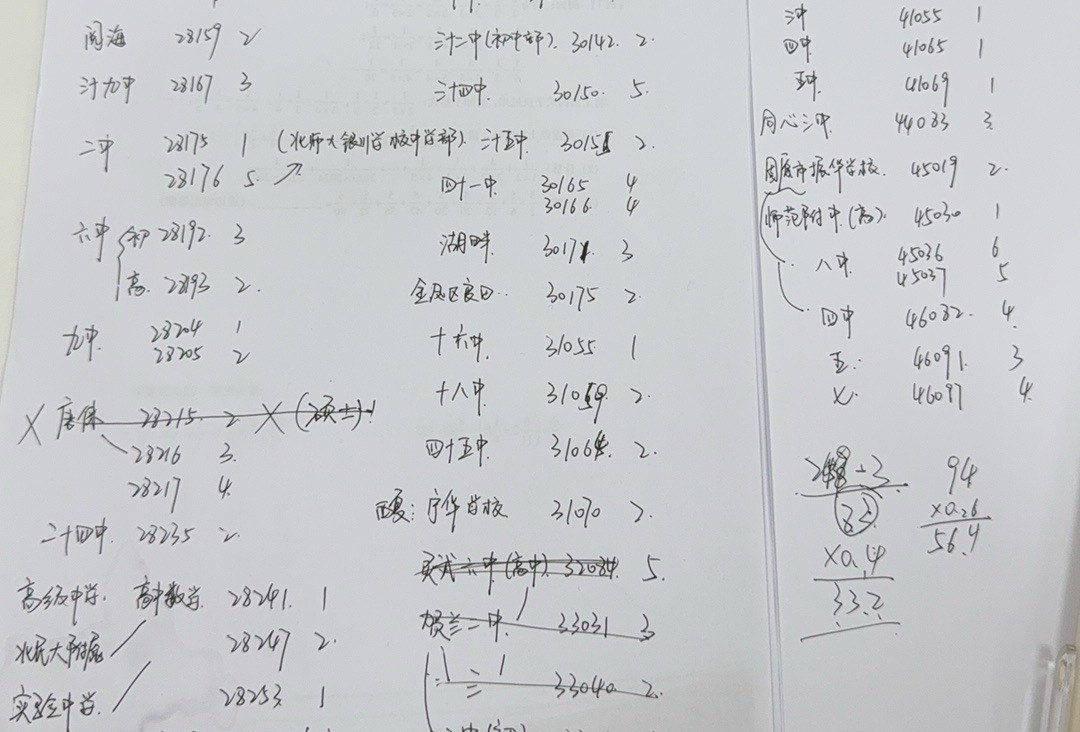 阅海 28159 2
三十九中 28167 3
二中 28175 1 (北师大银川学校中学部)
28176 5
六中 初 28192. 3
高. 28193 2.
九中. 28204 1
28205 2
X 唐徕 28215. 2 X (硕士)
28216 3.
28217 4.
二十四中. 28235 2.
高级中学. 高中数学. 28241. 1
北民大附属 28247 2.
实验中学. 28253. 1
三十二中(初中部). 30142. 2.
三十四中. 30150. 5.
三十五中. 30151 2.
四十一中 30165 4
30166 4
湖畔. 30171 3
金凤区良田.. 30175 2.
十六中. 31055 1
十八中. 31059 2.
四十五中. 31064. 2.
西夏: 宁华学校 31070 2.
六中(高中). 32084. 5.
贺兰一中. 33031 3
二 33040. 2.
三中 41055 1
四中 41065 1
五中. 41069 1
同心三中. 44083 3.
固原市振华学校. 45019 2.
师范附中(高). 45030 1
八中. 45036 6
45037 5
四中 46082. 4.
五. 46091. 3
46097 4.
÷3 94
83 ×0.6
×0.4 56.4
33.2